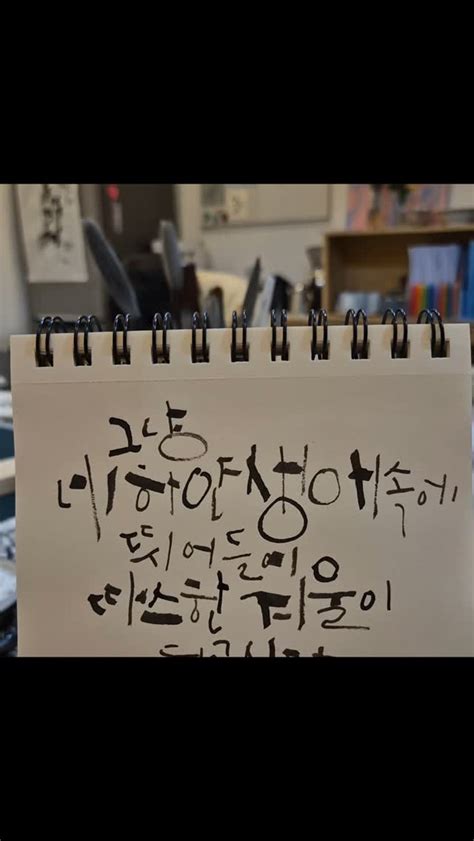 그냥
네 하얀 생애 속에
뛰어들어
따스한 겨울이